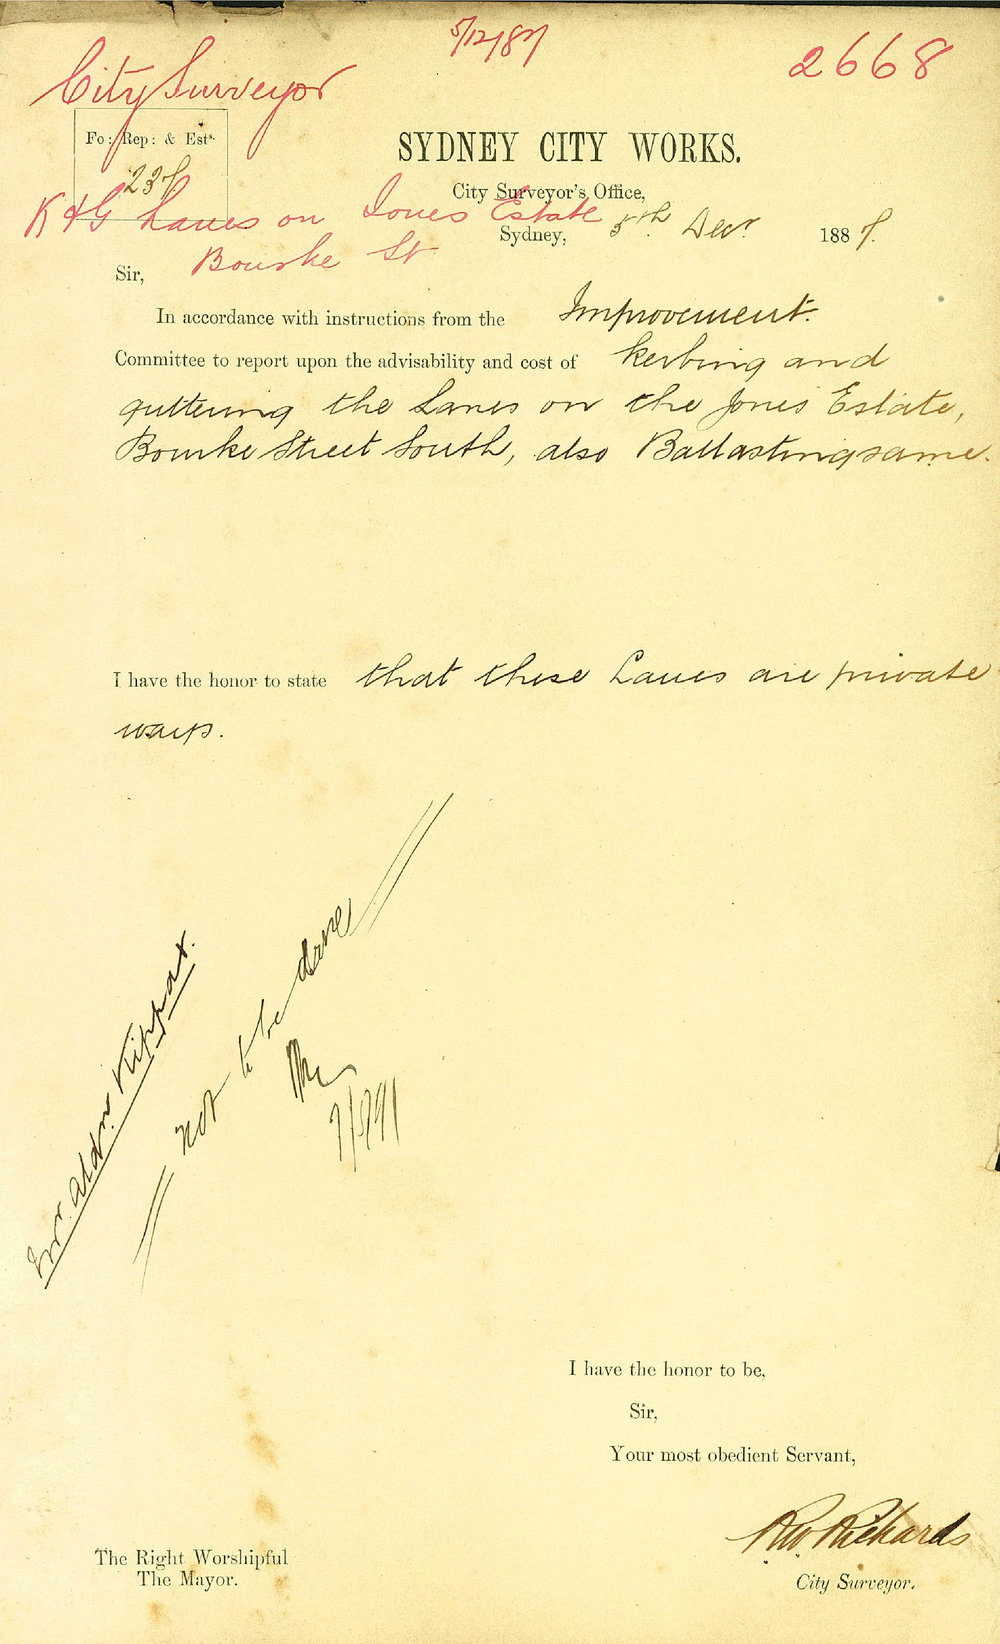 5/12/87
2668
City Surveyor
Fo: Rep: & Ests.
237
K & G Lanes on Jones Estate
Bourke St
SYDNEY CITY WORKS.
City Surveyor's Office,
Sydney, 5th Decr. 1887.
Sir,
In accordance with instructions from the Improvement.
Committee to report upon the advisability and cost of kerbing and
guttering the Lanes on the Jones Estate,
Bourke Street South, also Ballasting same.
I have the honor to state that these Lanes are private
ways.
Mr. Aldn. Kippax.
not to be done
I have the honor to be,
Sir,
Your most obedient Servant,
RW Richards
City Surveyor.
The Right Worshipful
The Mayor.